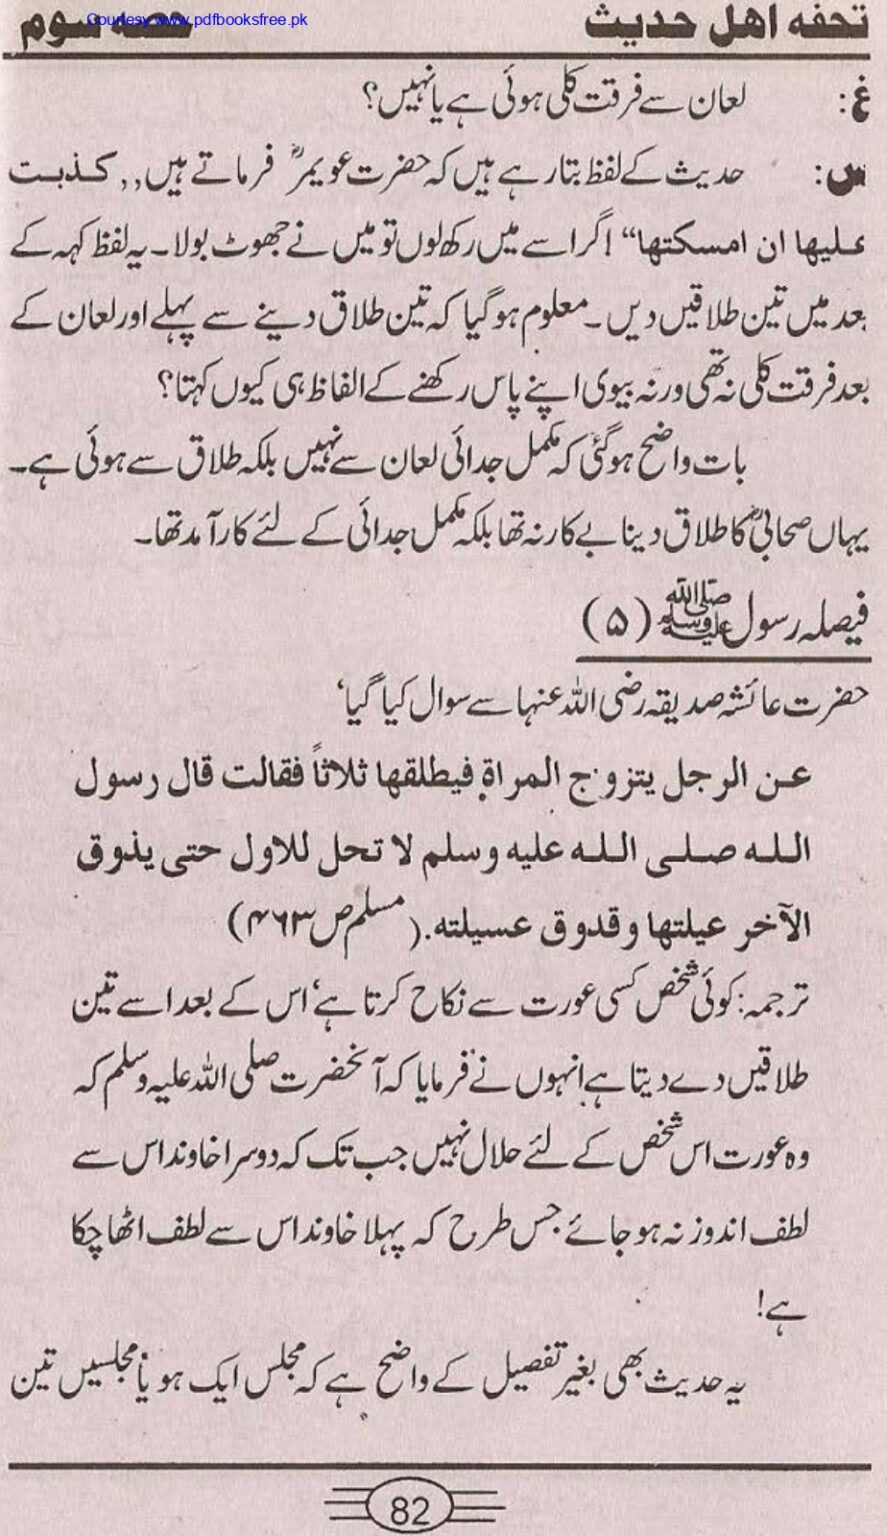 تحفہ اھل حدیث حصہ سوم
Courtesy www.pdfbooksfree.pk
غ: لعان سے فرقت کلی ہوئی ہے یا نہیں؟
س: حدیث کے لفظ بتا رہے ہیں کہ حضرت عویمرؓ فرماتے ہیں,, کذبت
علیھا ان امسکتھا“ اگر اسے میں رکھ لوں تو میں نے جھوٹ بولا۔ یہ لفظ کہہ کے
بعد میں تین طلاقیں دیں۔ معلوم ہوگیا کہ تین طلاق دینے سے پہلے اور لعان کے
بعد فرقت کلی نہ تھی ورنہ بیوی اپنے پاس رکھنے کے الفاظ ہی کیوں کہتا؟
بات واضح ہوگئی کہ مکمل جدائی لعان سے نہیں بلکہ طلاق سے ہوئی ہے۔
یہاں صحابیؓ کا طلاق دینا بے کار نہ تھا بلکہ مکمل جدائی کے لئے کار آمد تھا۔
فیصلہ رسول ﷺ (۵)
حضرت عائشہ صدیقہ رضی اللہ عنہا سے سوال کیا گیا‘
عن الرجل یتزوج المراۃ فیطلقھا ثلاثاً فقالت قال رسول
اللہ صلی اللہ علیہ وسلم لا تحل للاول حتی یذوق
الآخر عیلتھا وقدوق عسیلتہ. (مسلم ص ۴۶۳)
ترجمہ: کوئی شخص کسی عورت سے نکاح کرتا ہے‘ اس کے بعد اسے تین
طلاقیں دے دیتا ہے انہوں نے فرمایا کہ آنحضرت صلی اللہ علیہ وسلم کہ
وہ عورت اس شخص کے لئے حلال نہیں جب تک کہ دوسرا خاوند اس سے
لطف اندوز نہ ہوجائے جس طرح کہ پہلا خاوند اس سے لطف اٹھا چکا
ہے!
یہ حدیث بھی بغیر تفصیل کے واضح ہے کہ مجلس ایک ہو یا مجلسیں تین
82